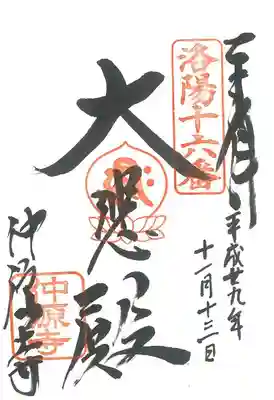 奉拝
平成廿九年
十一月十三日
洛陽十六番
大悲殿
仲源寺
仲源寺